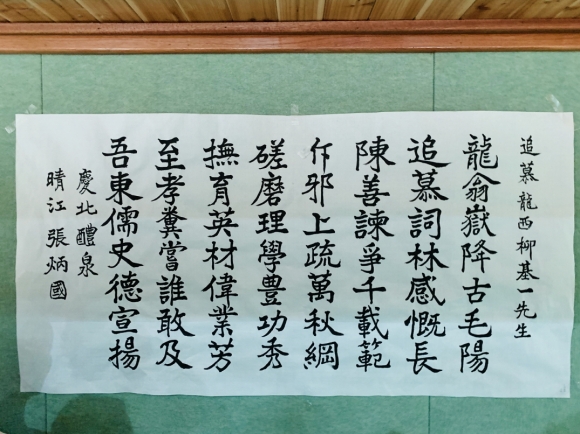 追慕龍西柳基一先生
龍翕嶽降古毛陽
追慕詞林感慨長
陳善諫爭千載範
斥邪上疏萬秋綱
磋磨理學豊功秀
撫育英材偉業芳
至孝糞嘗誰敢及
吾東儒史德宣揚
慶北醴泉
晴江 張炳國